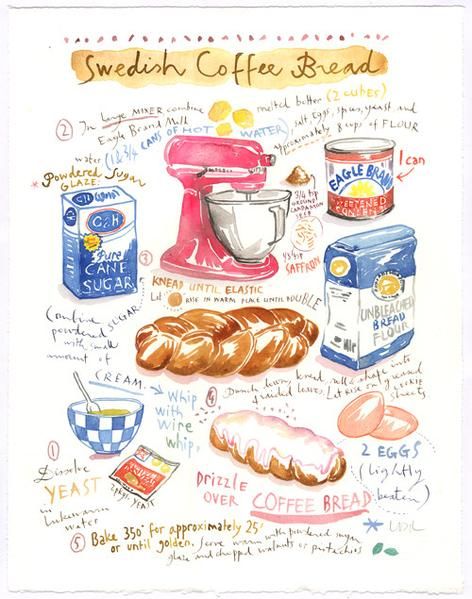 Swedish Coffee Bread
② In large MIXER combine
Eagle Brand Milk
(1 & 3/4 CANS OF HOT WATER)
melted butter (2 cubes)
salt, Eggs, spices, yeast and
approximately 8 cups of FLOUR
water
* Powdered Sugar
GLAZE:
C&H
Pure
CANE
SUGAR
1 can
EAGLE BRAND
SWEETENED
CONDENSED
3/4 tsp
GROUND
CARDAMON
SEED
SAFFRON
③ KNEAD UNTIL ELASTIC
Let RISE IN WARM PLACE UNTIL DOUBLE
UNBLEACHED
BREAD
FLOUR
Combine
powdered SUGAR
with small
amount of
CREAM.
Whip
with
wire
whip.
④ Punch down, knead, roll & shape into
braided loaves. Let rise on greased
COOKIE
sheets
2 EGGS
(lightly
beaten)
① Dissolve
YEAST
in
lukewarm
water
2 pkgs. YEAST
Drizzle
OVER COFFEE BREAD
⑤ Bake 350° for approximately 25'
or until golden. Serve warm with powdered sugar
glaze and chopped walnuts or pistachios